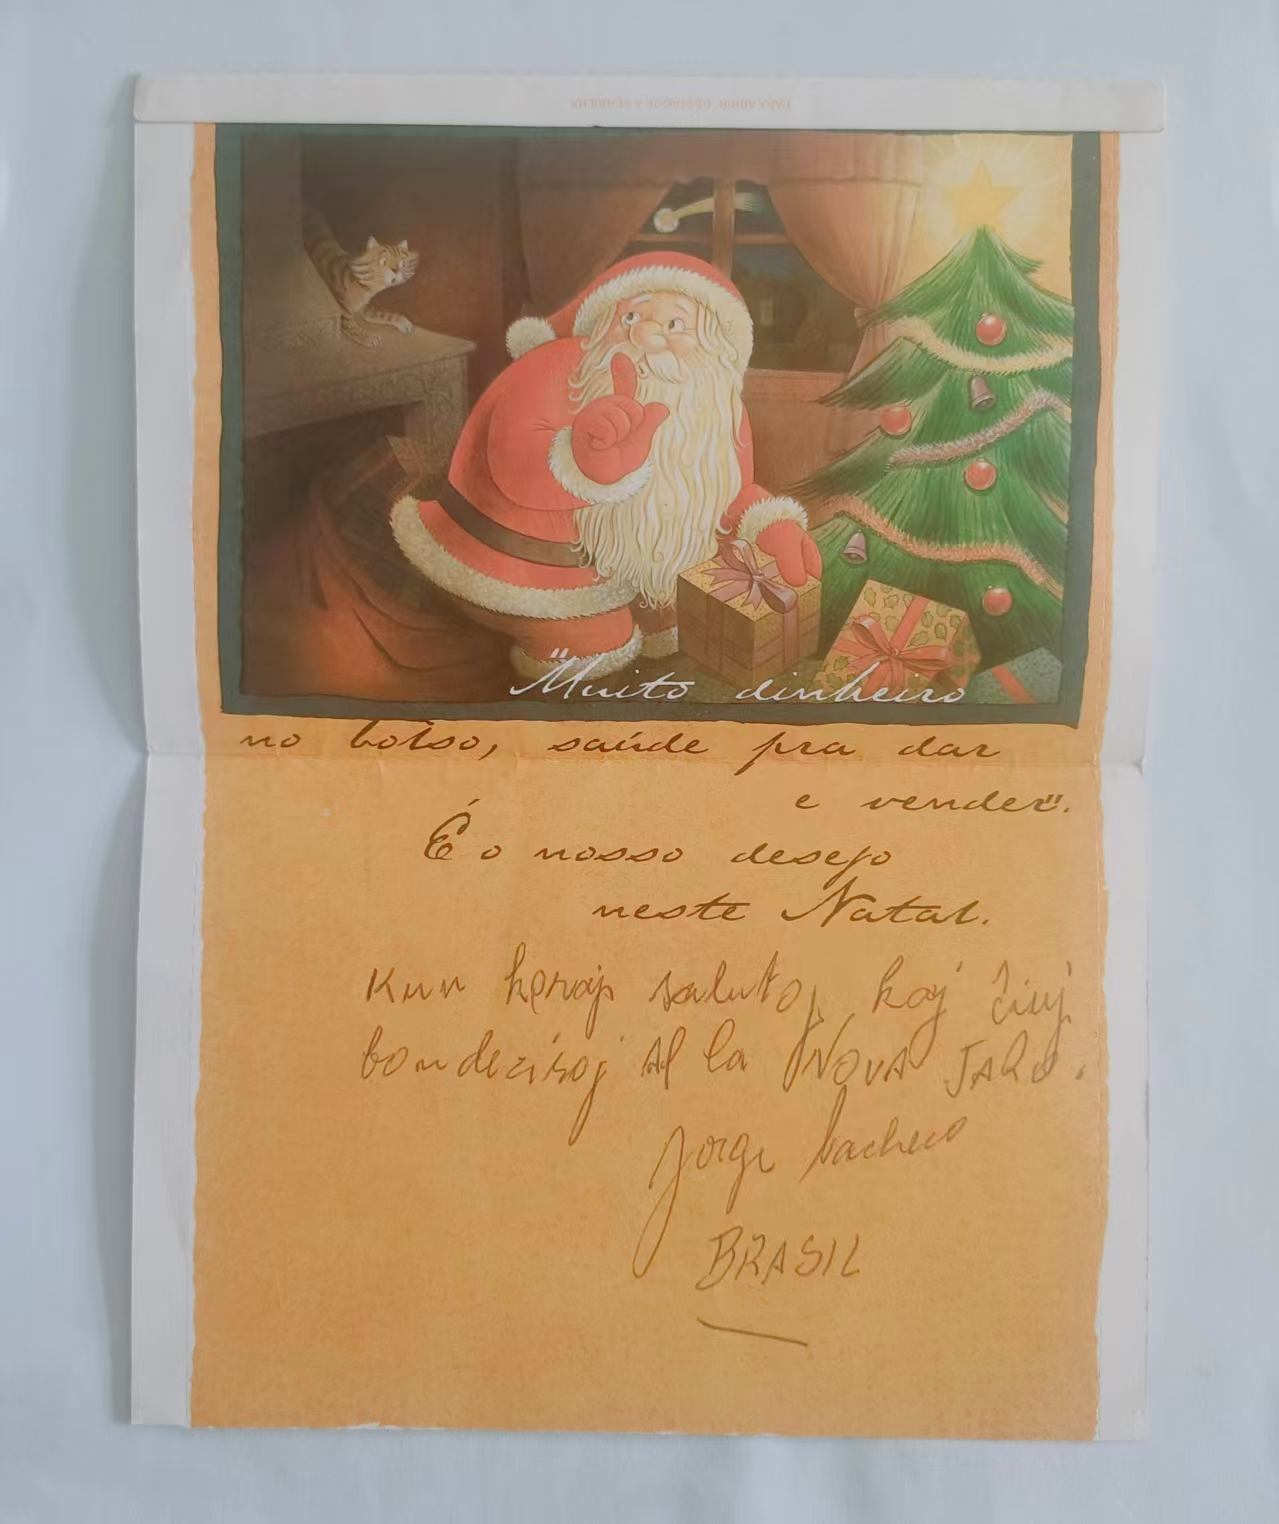 PARA ABRIR, DESTAQUE A SERRILHA
"Muito dinheiro
no bolso, saúde pra dar
e vender".
É o nosso desejo
neste Natal.
Kun koraj salutoj kaj ĉiuj
bondeziroj al la NOVA JARO.
Jorge Pacheco
BRASIL